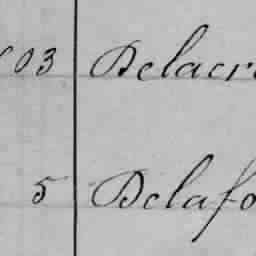 03 Delacr
5 Delafo